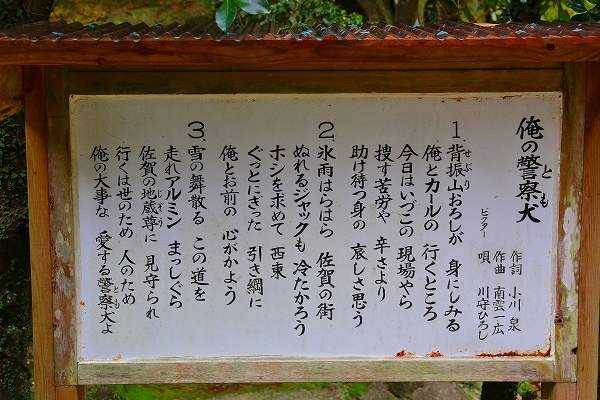 俺の警察犬
とも
作詞 小川 泉
作曲 南雲一広
ビクター 唄 川守ひろし
1. 背振山おろしが 身にしみる
せぶり
俺とカールの 行くところ
今日はいづこの 現場やら
捜す苦労や 辛さより
助け待つ身の 哀しさ思う
2. 氷雨はらはら 佐賀の街
ぬれるジャックも 冷たかろう
ホシを求めて 西東
ぐっとにぎった 引き綱に
俺とお前の 心がかよう
3. 雪の舞散る この道を
走れアルミン まっしぐら
佐賀の地蔵尊に 見守られ
じぞう
行くは世のため 人のため
俺の大事な 愛する警察犬よ
とも